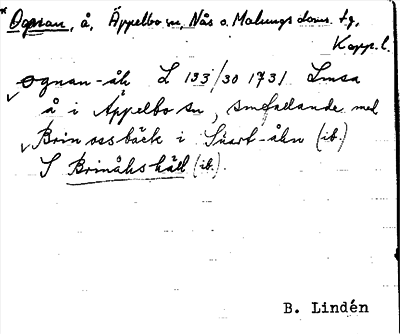 * Ognan, å, Äppelbo sn, Nås o. Malungs doms. tg,
Kopp. l.
ognan-åk L 133/30 1731 Lmsa
å i Äppelbo sn, smfallande med
Brin ossbäck i Snart-åkn (ib.)
S Brinåkshäll (ib.).
B. Lindén